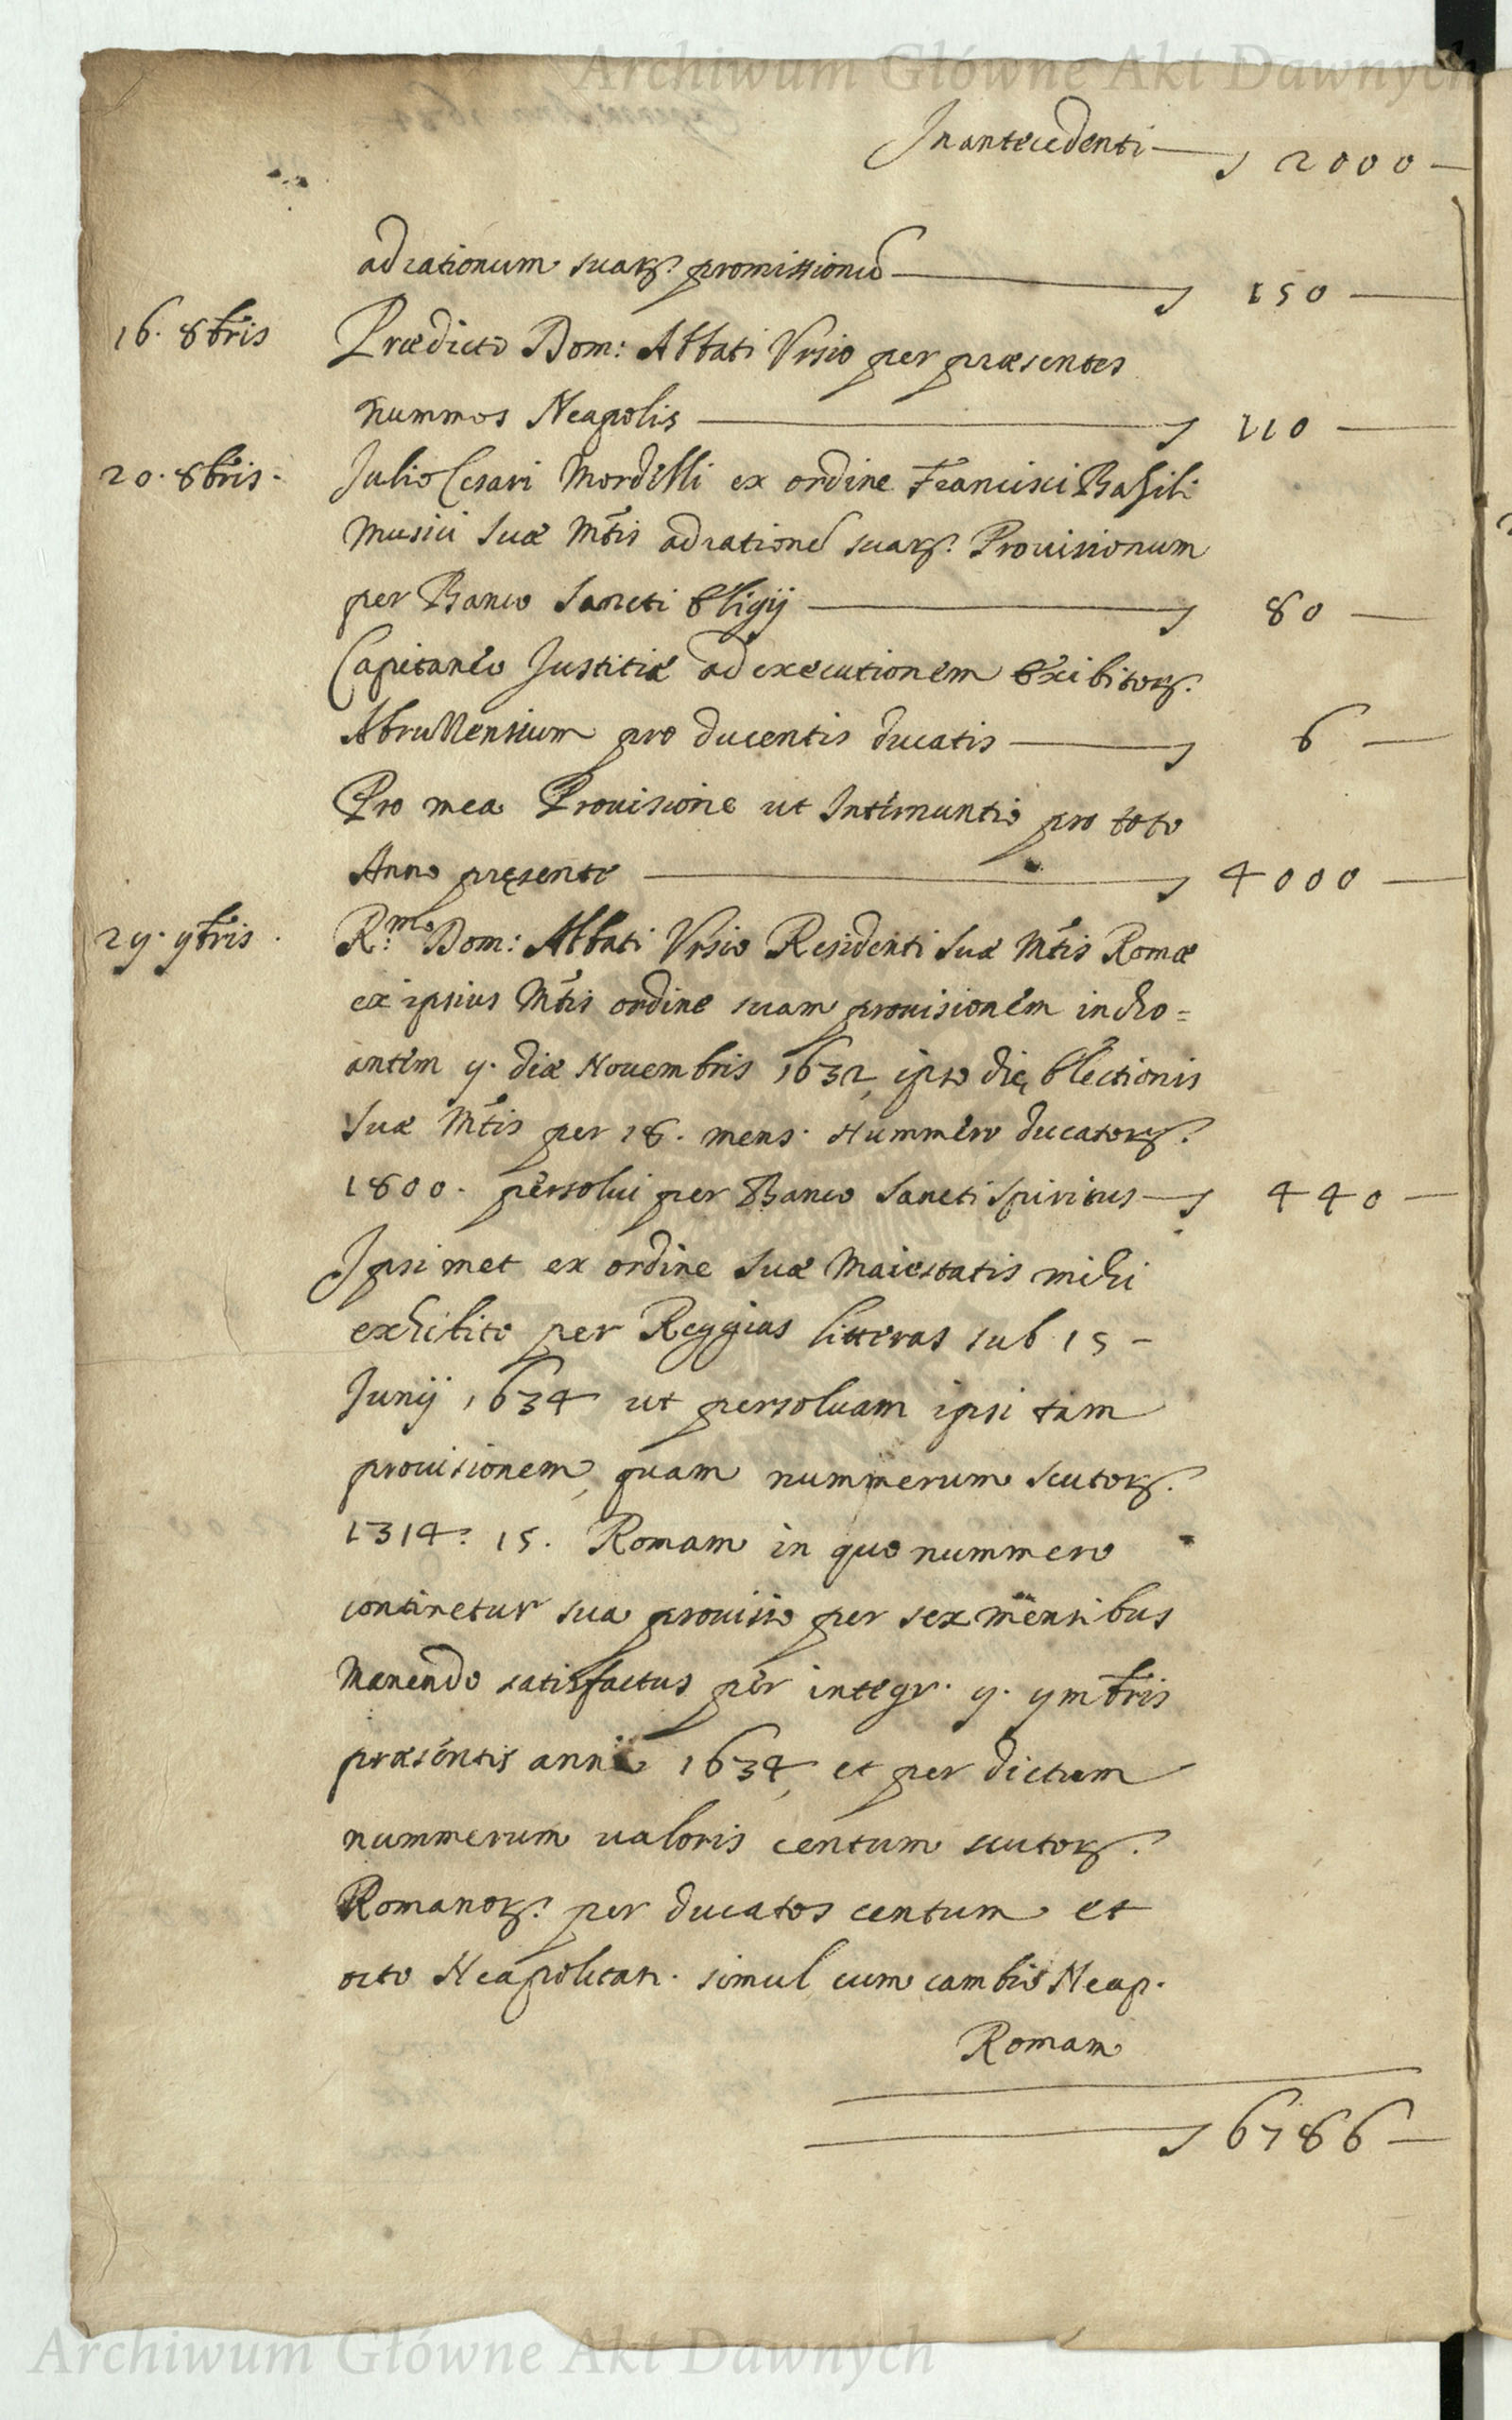 Archiwum Główne Akt Dawnych
In antecedenti 2000
ad rationum suarꝝ promissionũ 150
16. 8bris Prædicto Dom: Abbati Vrsio per præsentes
nummos Neapolis 110
20. 8bris. Julio Cesari Mordelli ex ordine Francisci Basili
Musici Suæ Mtis ad rationẽ suarꝝ Prouisionum
per Banco Sancti Eligij 80
Capitaneo Justitiæ ad executionem Exibitorꝝ
pro ducentis ducatis 6
Pro mea Prouisione ut Internuntio pro toto
Anno pręsente 4000
29. 9bris. R.mo Dom: Abbati Vrsio Residenti Suæ Mtis Romæ
ex ipsius Mtis ordine suam prouisionem incho=
antem 9. diæ Nouembris 1632, ipso dię Electionis
Suæ Mtis per 18. mens. Nummero ducatorꝝ
1800. persolui per Banco Sancti Spiritus 440
Ipsimet ex ordine Suæ Maiestatis mihi
exhibito per Reggias litteras sub 15
Junij 1634 ut persoluam ipsi tam
prouisionem, quam nummerum scutorꝝ
1314: 15. Romam in quo nummero
continetur sua prouisio per sex mensibus
Manendo satisfactus per integr. 9. 9mbris
præsentis anni 1634, et per dictum
nummerum ualoris centum scutorꝝ
Romanorꝝ per ducatos centum et
octo Neapolitan. simul cum cambio Neap.
Romam
6786
Archiwum Główne Akt Dawnych